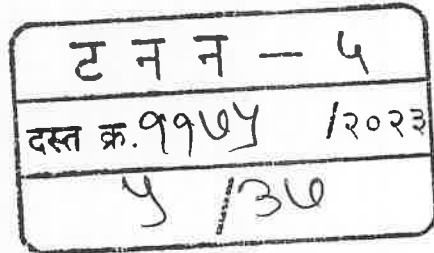 ट न न — ५
दस्त क्र. ११७५ /२०२३
५ /३७